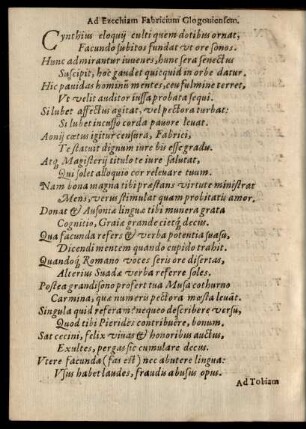 Ad Ezechiam Fabricium Glogouiensem.
Cynthius eloquij culti quem dotibus ornat,
Facundo subitos fundat vt ore sonos.
Hunc admirantur iuuenes, hunc sera senectus
Suscipit, hoc gaudet quitquid in orbe datur.
Hic pauidas hominū mentes, ceu fulmine terret,
Vt velit auditor iussa probata sequi.
Si lubet affectus agitat, vel pectora turbat:
Si lubet incusso corda pauore leuat.
Aonij cœtus igitur censura, Fabrici,
Te statuit dignum iure bis esse gradu.
Atq́; Magisterij titulo te iure salutat,
Qui solet alloquio cor releuare tuum.
Nam bona magna tibi præstans virtute ministrat
Mens, verus stimulat quam probitatis amor.
Donat & Ausoniæ lingua tibi munera grata
Cognitio, Graiæ grande cietq́; decus.
Qua facunda refers & verba potentia suasu,
Dicendi mentem quando cupido trahit.
Quandoq́; Romano voces seris ore disertas,
Alterius Suadæ verba referre soles.
Postea grandisono profert tua Musa cothurno
Carmina, quæ numeris pectora mœsta leuāt.
Singula quid referam? nequeo describere versu,
Quod tibi Pierides contribuêre, bonum.
Sat cecini, felix viuas & honoribus auctus,
Exultes, pergas sic cumulare decus.
Vtere facunda (fas est) nec abutere lingua:
Vsus habet laudes, fraudis abusus opus.
Ad Tobiam